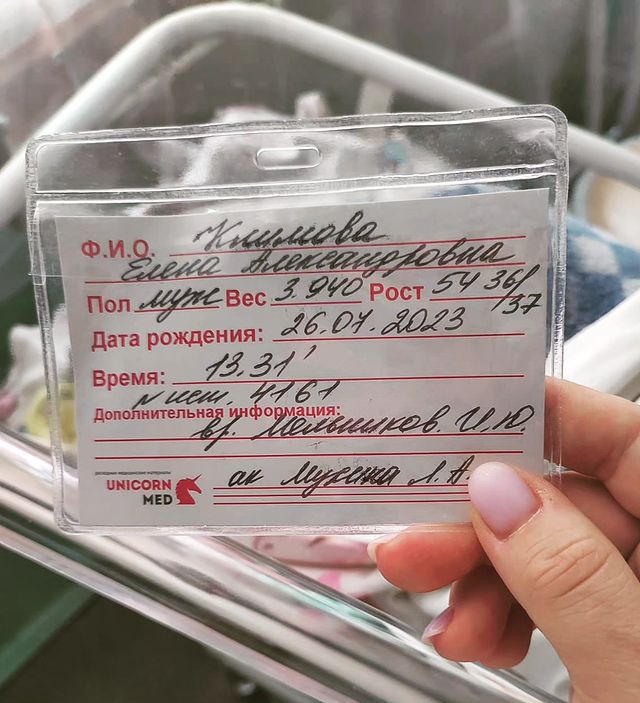 Ф.И.О. Климова
Елена Александровна
Пол муж Вес 3.940 Рост 54 36/37
Дата рождения: 26.07.2023
Время: 13.31'
N ист. 4161
Дополнительная информация:
вр. Мельников. И.Ю.
UNICORN
MED
ак Мухина Л.А.